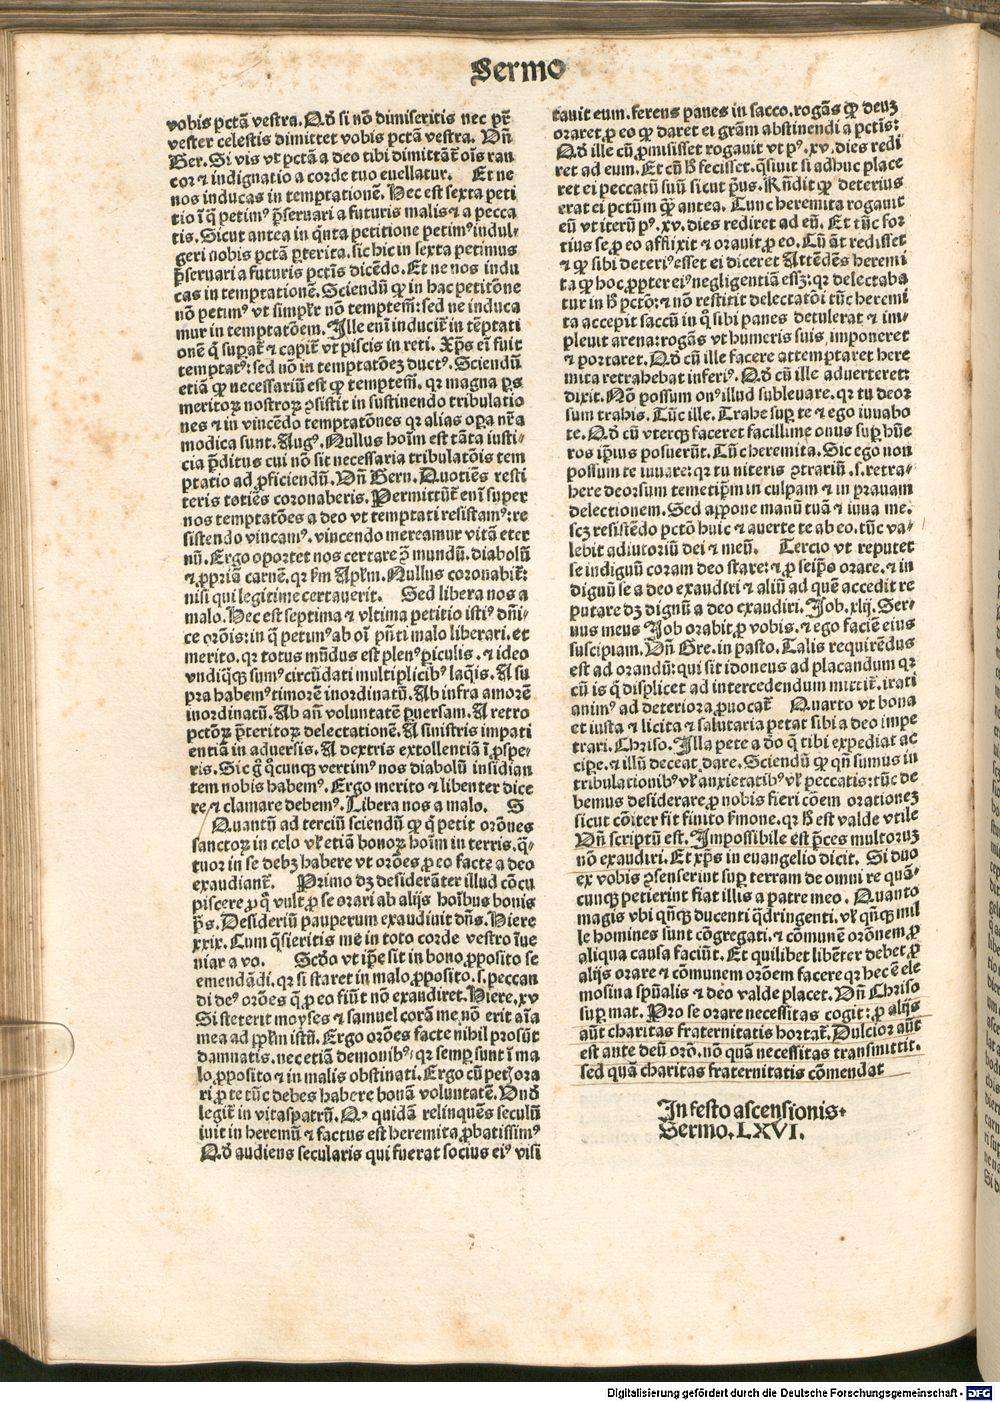 Sermo
vobis pctã vestra. Qđ si nõ dimiseritis nec pr̃
vester celestis dimittet vobis pctã vestra. Vñ
Ber. Si vis vt pctã a deo tibi dimittãt̃ oĩs ran
cor ⁊ indignatio a corde tuo euellatur. Et ne
nos inducas in temptationẽ. Hec est sexta peti
tio ĩ q̃ petimꝰ p̃seruari a futuris malis ⁊ a pecca
tis. Sicut antea in q̃nta petitione petimꝰ indul⸗
geri nobis pctã p̱terita. sic hic in sexta petimus
p̃seruari a futuris pctĩs dicẽdo. Et ne nos indu
cas in temptationẽ. Sciendũ ꝙ in hac petitõne
nõ petimꝰ vt simplr̃ nõ temptem̃: sed ne induca
mur in temptatõem. Ille enĩ inducit̃ in tẽptati
onẽ q̃ supat̃ ⁊ capit̃ vt piscis in reti. Xp̃s eĩ fuit
temptatꝰ: sed nõ in temptatõeꝫ ductꝰ. Sciendũ
etiã ꝙ necessariũ est ꝙ temptem̃. qꝛ magna ꝑs
meritoꝝ nostroꝝ ꝯsistit in sustinendo tribulatio
nes ⁊ in vincẽdo temptatõnes qꝛ alias oꝑa nr̃a
modica sunt. Augꝰ. Nullus hoĩm est tãta iusti⸗
cia p̃ditus cui nõ sit necessaria tribulatõis tem
ptatio ad ꝓficiendũ. Vñ Bern. Quotiẽs resti
teris totiẽs coronaberis. Permittũt̃ enĩ super
nos temptatões a deo vt temptati resistamꝰ: re
sistendo vincamꝰ. vincendo mereamur vitã eter
nã. Ergo oportet nos certare ꝯ̃ mundũ. diabolũ
⁊ ꝓpriã carnẽ. qꝛ ßm Apl̃m. Nullus coronabit̃:
nisi qui legitime certauerit. Sed libera nos a
malo. Hec est septima ⁊ vltima petitio istiꝰ dñi⸗
ce orõis: in q̃ petimꝰ ab oĩ pñti malo liberari. et
merito. qꝛ totus mũdus est plenꝰ ꝑiculis. ⁊ ideo
vndiqꝫ sumꝰ circũdati multiplicibꝰ laq̃is. A su
pra habemꝰ timorẽ inordinatũ. Ab infra amorẽ
inordinatũ. Ab añ voluntatẽ ꝑuersam. A retro
pctõꝝ p̃teritoꝝ delectationẽ. A sinistris impati
entiã in aduersis. A dextris extollentiã ĩ ꝓspe⸗
ris. Sic g̃ q̃cunqꝫ vertimꝰ nos diabolũ insidian
tem nobis habemꝰ. Ergo merito ⁊ libenter dice
re ⁊ clamare debemꝰ. Libera nos a malo. S
Quantũ ad terciũ sciendũ ꝙ q̃ petit orõnes
sanctoꝝ in celo vl̃ etiã bonoꝝ hoĩm in terris. q̃⸗
tuor in se debꝫ habere vt orões ꝓ eo facte a deo
exaudiant̃. Primo dꝫ desiderãter illud cõcu
piscere ꝓ q̃ vult ꝓ se orari ab alijs hoĩbus bonis
p̃s. Desideriũ pauperum exaudiuit dñs. Hiere
xxix. Cum q̃sieritis me in toto corde vestro ĩue
niar a vo. Scđo vt ip̃e sit in bono ꝓposito se
emendãdi. qꝛ si staret in malo ꝓposito .s. peccan
di deꝰ orões q̃ ꝓ eo fiũt nõ exaudiret. Hiere. xv
Si steterit moyses ⁊ samuel corã me nõ erit aĩa
mea ad pp̃l̃m istũ. Ergo orões facte nihil prosũt
damnatis. nec etiã demonibꝰ: qꝛ semꝑ sunt ĩ ma
lo ꝓposito ⁊ in malis obstinati. Ergo cũ peṱ ora
ri ꝓ te tũc debes habere bonã voluntatẽ. Vnđ
legit̃ in vitaspatrũ. Qꝫ quidã relinquẽs seculũ
iuit in heremũ ⁊ factus est heremita ꝓbatissimꝰ
Qđ audiens secularis qui fuerat socius eiꝰ visi
tauit eum. ferens panes in sacco. rogãs ꝙ deuꝫ
oraret ꝓ eo ꝙ daret ei gr̃am abstinendi a pctĩs:
Qđ ille cũ ꝓmisisset rogauit vt pꝰ .xv. dies redi
ret ad eum. Et cũ ħ fecisset. q̃siuit si adhuc place
ret ei peccatũ suũ sicut pͥus. Rñdit ꝙ deterius
erat ei pctũm ꝙ̃ antea. Tunc heremita rogauit
eũ vt iterũ pꝰ .xv. dies rediret ad eũ. Et tũc for
tius se ꝓ eo afflixit ⁊ orauit ꝓ eo. Cũ at̃ redisset
⁊ ꝙ sibi deteriꝰ esset ei diceret Attẽdẽs heremi
ta ꝙ hoc ꝓpter eiꝰ negligentiã esſꝫ: qꝛ delectaba
tur in ħ pctõ: ⁊ nõ restitit delectatõi tũc heremi
ta accepit saccũ in q̊ sibi panes detulerat ⁊ im⸗
pleuit arena: rogãs vt humeris suis imponeret
⁊ portaret. Qđ cũ ille facere attemptaret here
mita retrahebat inferiꝰ. Qđ cũ ille aduerteret:
dixit. Nõ possum onꝰ illud subleuare. qꝛ tu deor
sum trahis. Tũc ille. Trahe suꝑ te ⁊ ego iuuabo
te. Qđ cũ vterqꝫ faceret facillime onus suꝑ hũe
ros ip̃ius posuerũt. Tũc heremita. Sic ego non
possum te iuuare: qꝛ tu niteris ꝯtrariũ .s. retra⸗
here deorsum temetip̃m in culpam ⁊ in prauam
delectionem. Sed appone manũ tuã ⁊ iuua me.
scꝫ resistẽdo pctõ huic ⁊ auerte te ab eo. tũc va⸗
lebit adiutoriũ dei ⁊ meũ. Tercio vt reputet
se indignũ coram deo stare: ⁊ ꝓ seip̃o orare. ⁊ in
dignũ se a deo exaudiri ⁊ aliũ ad quẽ accedit re
putare dꝫ dignũ a deo exaudiri. Job. xlij. Ser⸗
uus meus Job orabit ꝓ vobis. ⁊ ego faciẽ eius
suscipiam. Vñ Gre. in pasto. Talis requirẽdus
est ad orandũ: qui sit idoneus ad placandum qꝛ
cũ is q̃ displicet ad intercedendum mittit̃. irati
animꝰ ad deteriora ꝓuocat̃ Quarto vt bona
et iusta ⁊ licita ⁊ salutaria petat sibi a deo impe
trari. Chriso. Illa pete a dõ q̃ tibi expediat ac
ciꝑe. ⁊ illũ deceat dare. Sciendũ ꝙ qñ sumus in
tribulationibꝰ vl̃ anxietatibꝰ vl̃ peccatis: tũc de
bemus desiderare ꝓ nobis fieri cõem orationeꝫ
sicut cõiter fit finito ßmone. qꝛ ħ est valde vtile
Vñ scriptũ est. Impossibile est p̃ces multoruꝫ
nõ exaudiri. Et xp̃s in euangelio dicit. Si duo
ex vobis ꝯsenserint suꝑ terram de omni re quã⸗
cunqꝫ petierint fiat illis a patre meo. Quanto
magis vbi qñqꝫ ducenti q̃dringenti. vl̃ qñqꝫ mil
le homines sunt cõgregati. ⁊ cõmunẽ orõnem ꝓ
aliqua causa faciũt. Et quilibet libẽter debet ꝓ
alijs orare ⁊ cõmunem orõem facere qꝛ hec ẽ ele
mosina sp̃ualis ⁊ deo valde placet. Vñ Chriso
suꝑ mat. Pro se orare necessitas cogit: ꝓ alijs
aũt charitas fraternitatis hortat̃. Dulcior aũt
est ante deũ orõ. nõ quã necessitas transmittit.
sed quã charitas fraternitatis cõmendat
In festo ascensionis.
Sermo. LXVI.
Digitalisierung gefördert durch die Deutsche Forschungsgemeinschaft - DFG